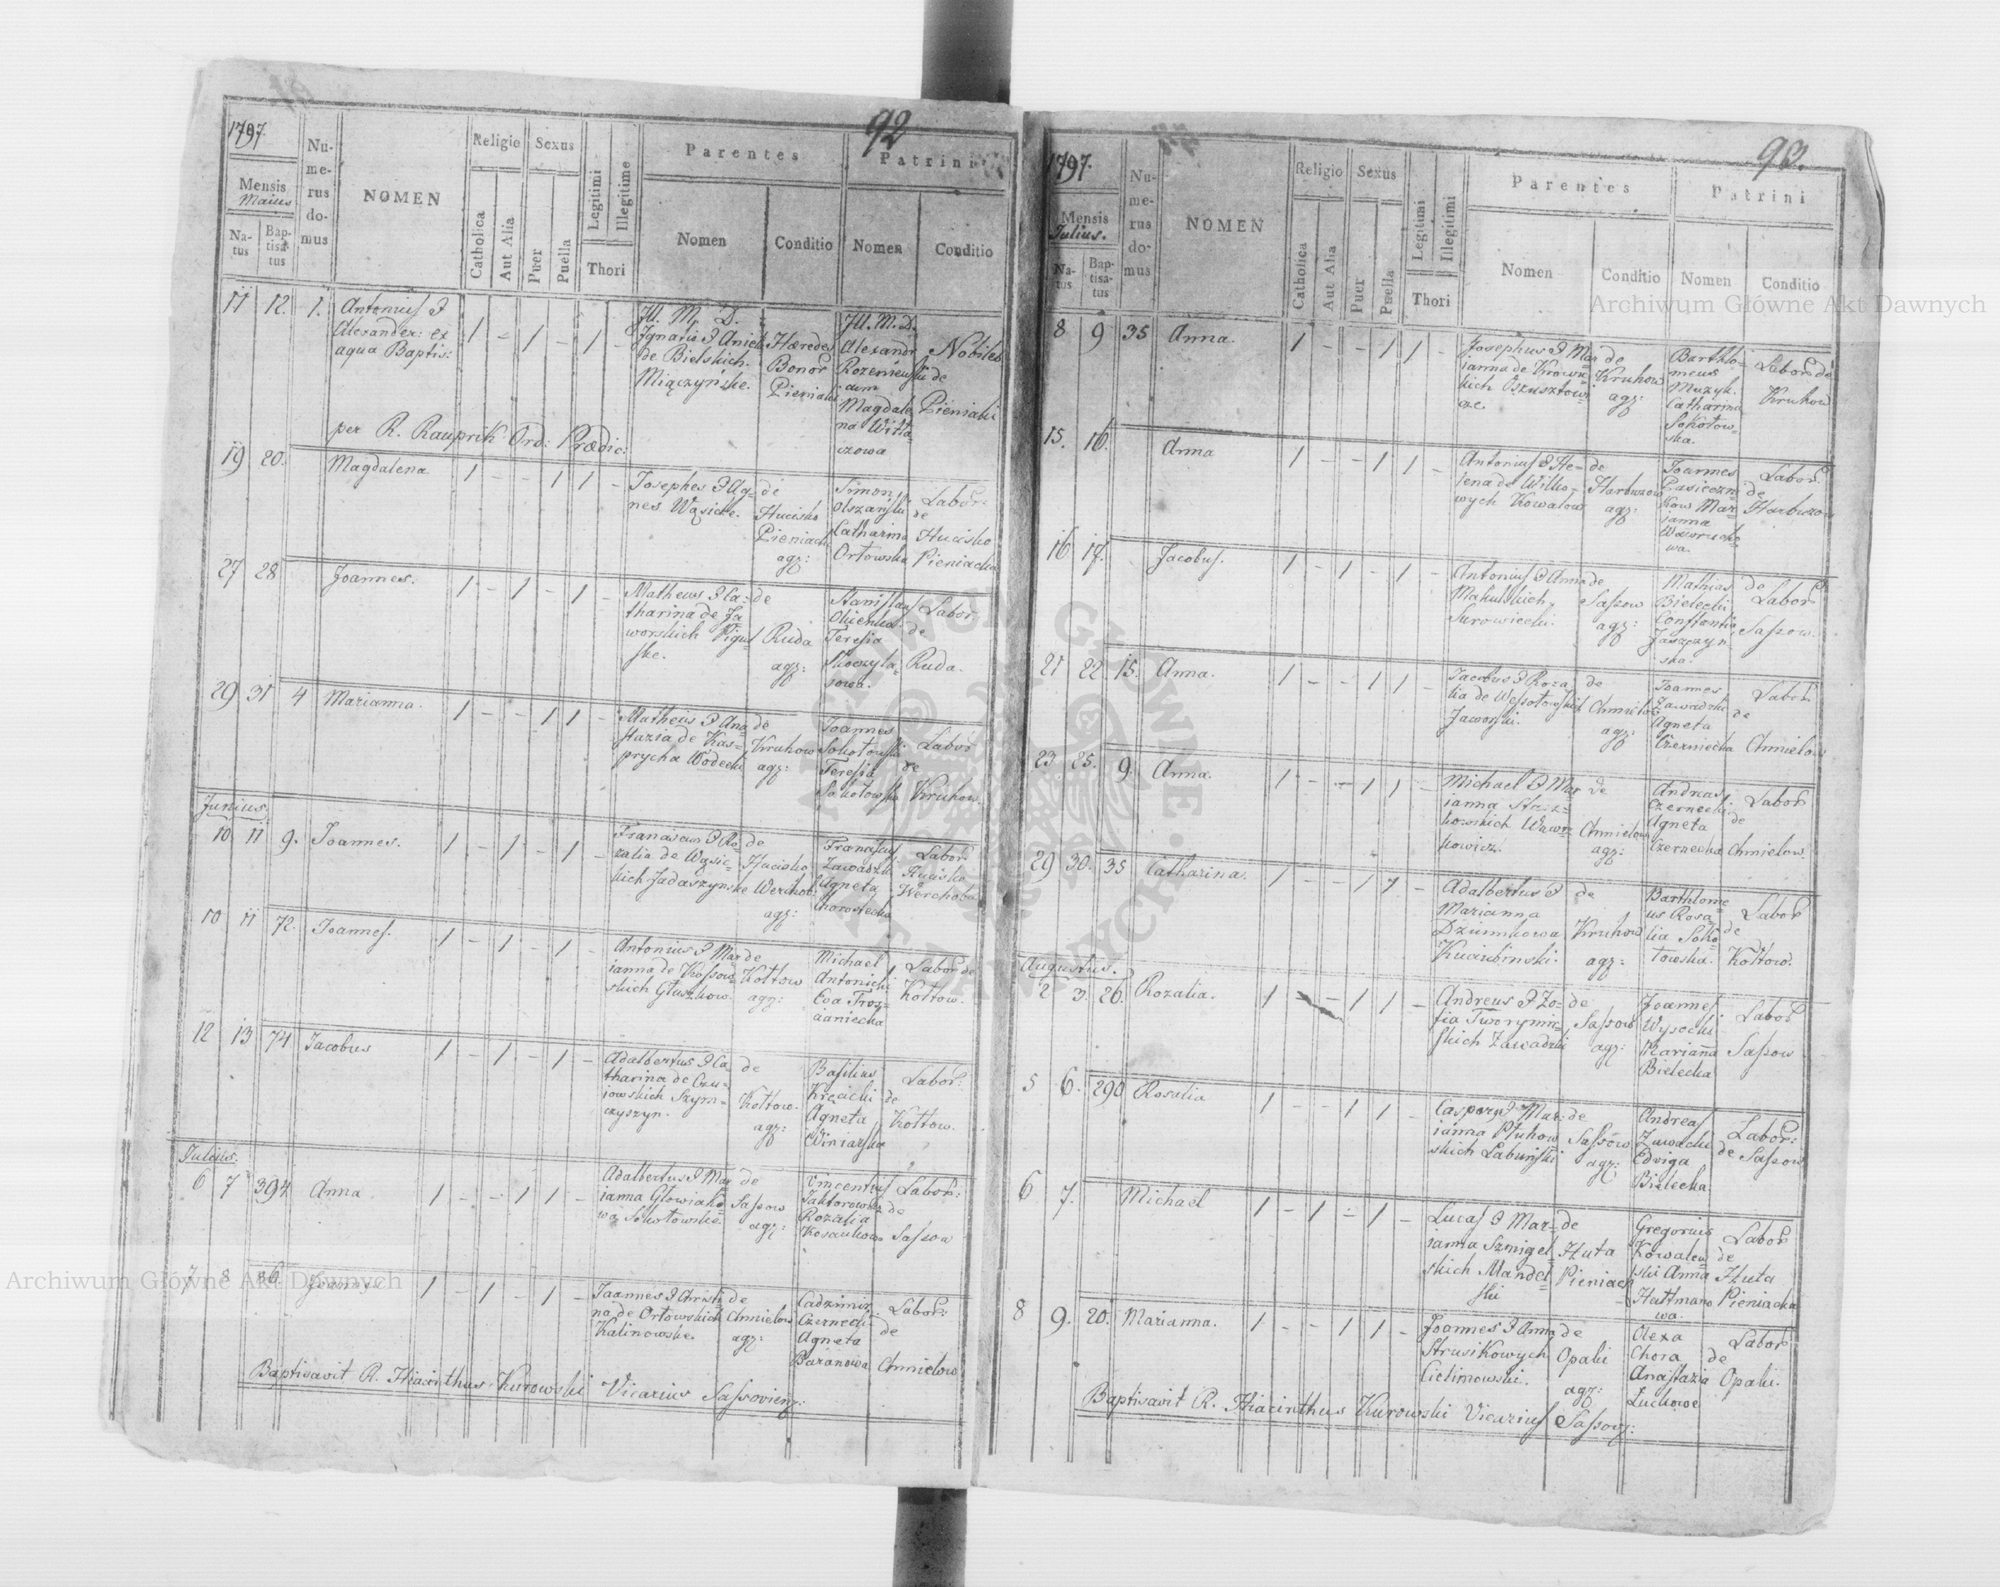 92
1797
Mensis
Maius
Na-
tus
Bap-
tisa-
tus
Nu-
me-
rus
do-
mus
NOMEN
Religio
Catholica
Aut Alia
Sexus
Puer
Puella
Legitimi
Illegitime
Thori
Parentes
Nomen
Conditio
Patrini
Nomen
Conditio
11 12. 1. Antonius &
Alexander: ex
aqua Baptis:
1 - 1 - 1 -
Ill. M. D.
Ignatii & Aniela
de Bielskich
Miączyńske.
Hæredes
Bonor
Pieniaki
Ill. M. D.
Alexandr
Rozeniewski
cum
Magdale
na Witta
czowa
Nobiles
de
Pieniaki
per R. Rauprik Ord: Prædic:
19 20. Magdalena
1 - - 1 1 -
Josephus & Ag=
nes Wąsicke.
de
Hucisko
Pieniack
agr:
Simon
Olszański
Catharina
Orłowska
Labor:
de
Hucisko
Pieniacka
27 28 Joannes.
1 - 1 - 1 -
Matheus & Ca-
tharina de Ja
worskich Pigul
ske.
de
Ruda
agr:
Stanislaus
Teresia
Skoczyla=
sowa.
Labor
de
Ruda.
29 31 4 Marianna.
1 - - 1 1 -
Matheus & Ana
stazia de Kas=
prycha Wodecki
de
Kruhow
agr:
Joannes
Sokołowski
Teresia
Sokołowska
Labor
de
Kruhow.
Junius.
10 11 9. Joannes.
1 - 1 - 1 -
Franciscus & Ro=
zalia de Wąsic=
kich Jadaszynske
de
Hucisko
Werchob:
agr:
Franciscus
Zawadzki
Agneta
Chorosiecka
Labor
Hucisko
Werchobu
10 11 72. Joannes.
1 - 1 - 1 -
Antonius & Mar
ianna de Kossow
skich Głuszkow.
de
Kołtow
agr:
Michael
Antonich
Eva Troy=
aaniecka
Labor de
Kołtow.
12 13 74 Jacobus
1 - 1 - 1 -
Adalbertus & Ca
tharina de Czu=
iowskich Szym=
czyszyn.
de
Kołtow.
agr:
Basilius
Kręcicki
Agneta
Winiarska
Labor:
de
Kołtow.
Julius.
6 7 394 Anna.
1 - - 1 1 -
Adalbertus & Mar
ianna Głowiak=
wa Sokołowske.
de
Sassow
agr:
Vincentius
Jaktorowicz
Rozalia
Labor:
de
Sassow
7 8 86
1 - 1 - 1 -
Joannes & Christi
na de Orłowskich
Kalinowske.
de
Chmielow
agr:
Cadzimir
Czernecki
Agneta
Baranowa
Labor:
de
Chmielow
Baptisavit R. Hiacinthus Kurowski Vicarius Sassovien:
93.
1797.
Mensis
Julius.
Na-
tus
Bap-
tisa-
tus
Nu-
me-
rus
do-
mus
NOMEN
Religio
Catholica
Aut Alia
Sexus
Puer
Puella
Legitimi
Illegitimi
Thori
Parentes
Nomen
Conditio
Patrini
Nomen
Conditio
8 9 35 Anna.
1 - - 1 1 -
Josephus & Mar
ianna de Krowic
kich
de
Kruhow
agr:
Bartho=
meus
Muzyk.
Catharina
Sokołow=
ska.
Labor de
Kruhow
15. 16. Anna
1 - - 1 1 -
Antonius & He=
lena de Wilko=
wych Kowalow
de
Harbuzow
agr:
Joannes
Pasiecznikow
Marianna
Labor
de
Harbuzow
16 17. Jacobus.
1 - 1 - 1 -
Antonius & Anna
Makulskich
Surowiecki.
de
Sassow
agr:
Mathias
Bielecki
Constantia
Jaszczyn
ska.
de
Labor
Sassow.
21 22 15. Anna.
1 - - 1 1 -
Jacobus & Roza
lia de Wesołowskich
Jaworski.
de
Chmielow
agr:
Joannes
Zawadzki
Agneta
Czerniecka
Labor
de
Chmielow
23 25. 9. Anna.
1 - - 1 1 -
Michael & Mar
ianna
kowskich Wawr=
kowicz.
de
Chmielow
agr:
Andreas
Czernecki
Agneta
Czernecka
Labor
de
Chmielow.
29 30. 35 Catharina.
1 - - 1 1 -
Adalbertus &
Marianna
Dziunkowa
de
Kruhow
agr:
Barthlome=
us Rosa=
lia Soko
łowska.
Labor
de
Kołtow.
Augustus.
2 3. 26. Rozalia.
1 - - 1 1 -
Andreus & Zo=
fia Tworymin=
skich Zawadzki
de
Sassow
agr:
Joannes
Wysocki
Marianna
Bielecka
Labor
Sassow
5 6. 290 Rosalia
1 - - 1 1 -
Casper & Mar=
ianna Pluhow
skich Łabuński
de
Sassow
agr:
Andreas
Zawacki
Edviga
Bielecka
Labor:
de Sassow
6 7. Michael
1 - 1 - 1 -
Lucas & Mar=
ianna Szmigel
skich Mandel=
ski
de
Huta
Pieniack
Gregorius
Kowalew
ski Anna
Huttmano
wa.
Labor
de
Huta
Pieniacka
8 9. 20. Marianna.
1 - - 1 1 -
Joannes & Anna
Strusikowych
Cielimowski.
de
Opaki
agr:
Olexa
Chora
Anastazia
Luckowe
Labor
de
Opaki.
Baptisavit R. Hiacinthus Kurowski Vicarius Sassow:
Archiwum Główne Akt Dawnych
Archiwum Główne Akt Dawnych
ARCHIWUM GŁÓWNE AKT DAWNYCH